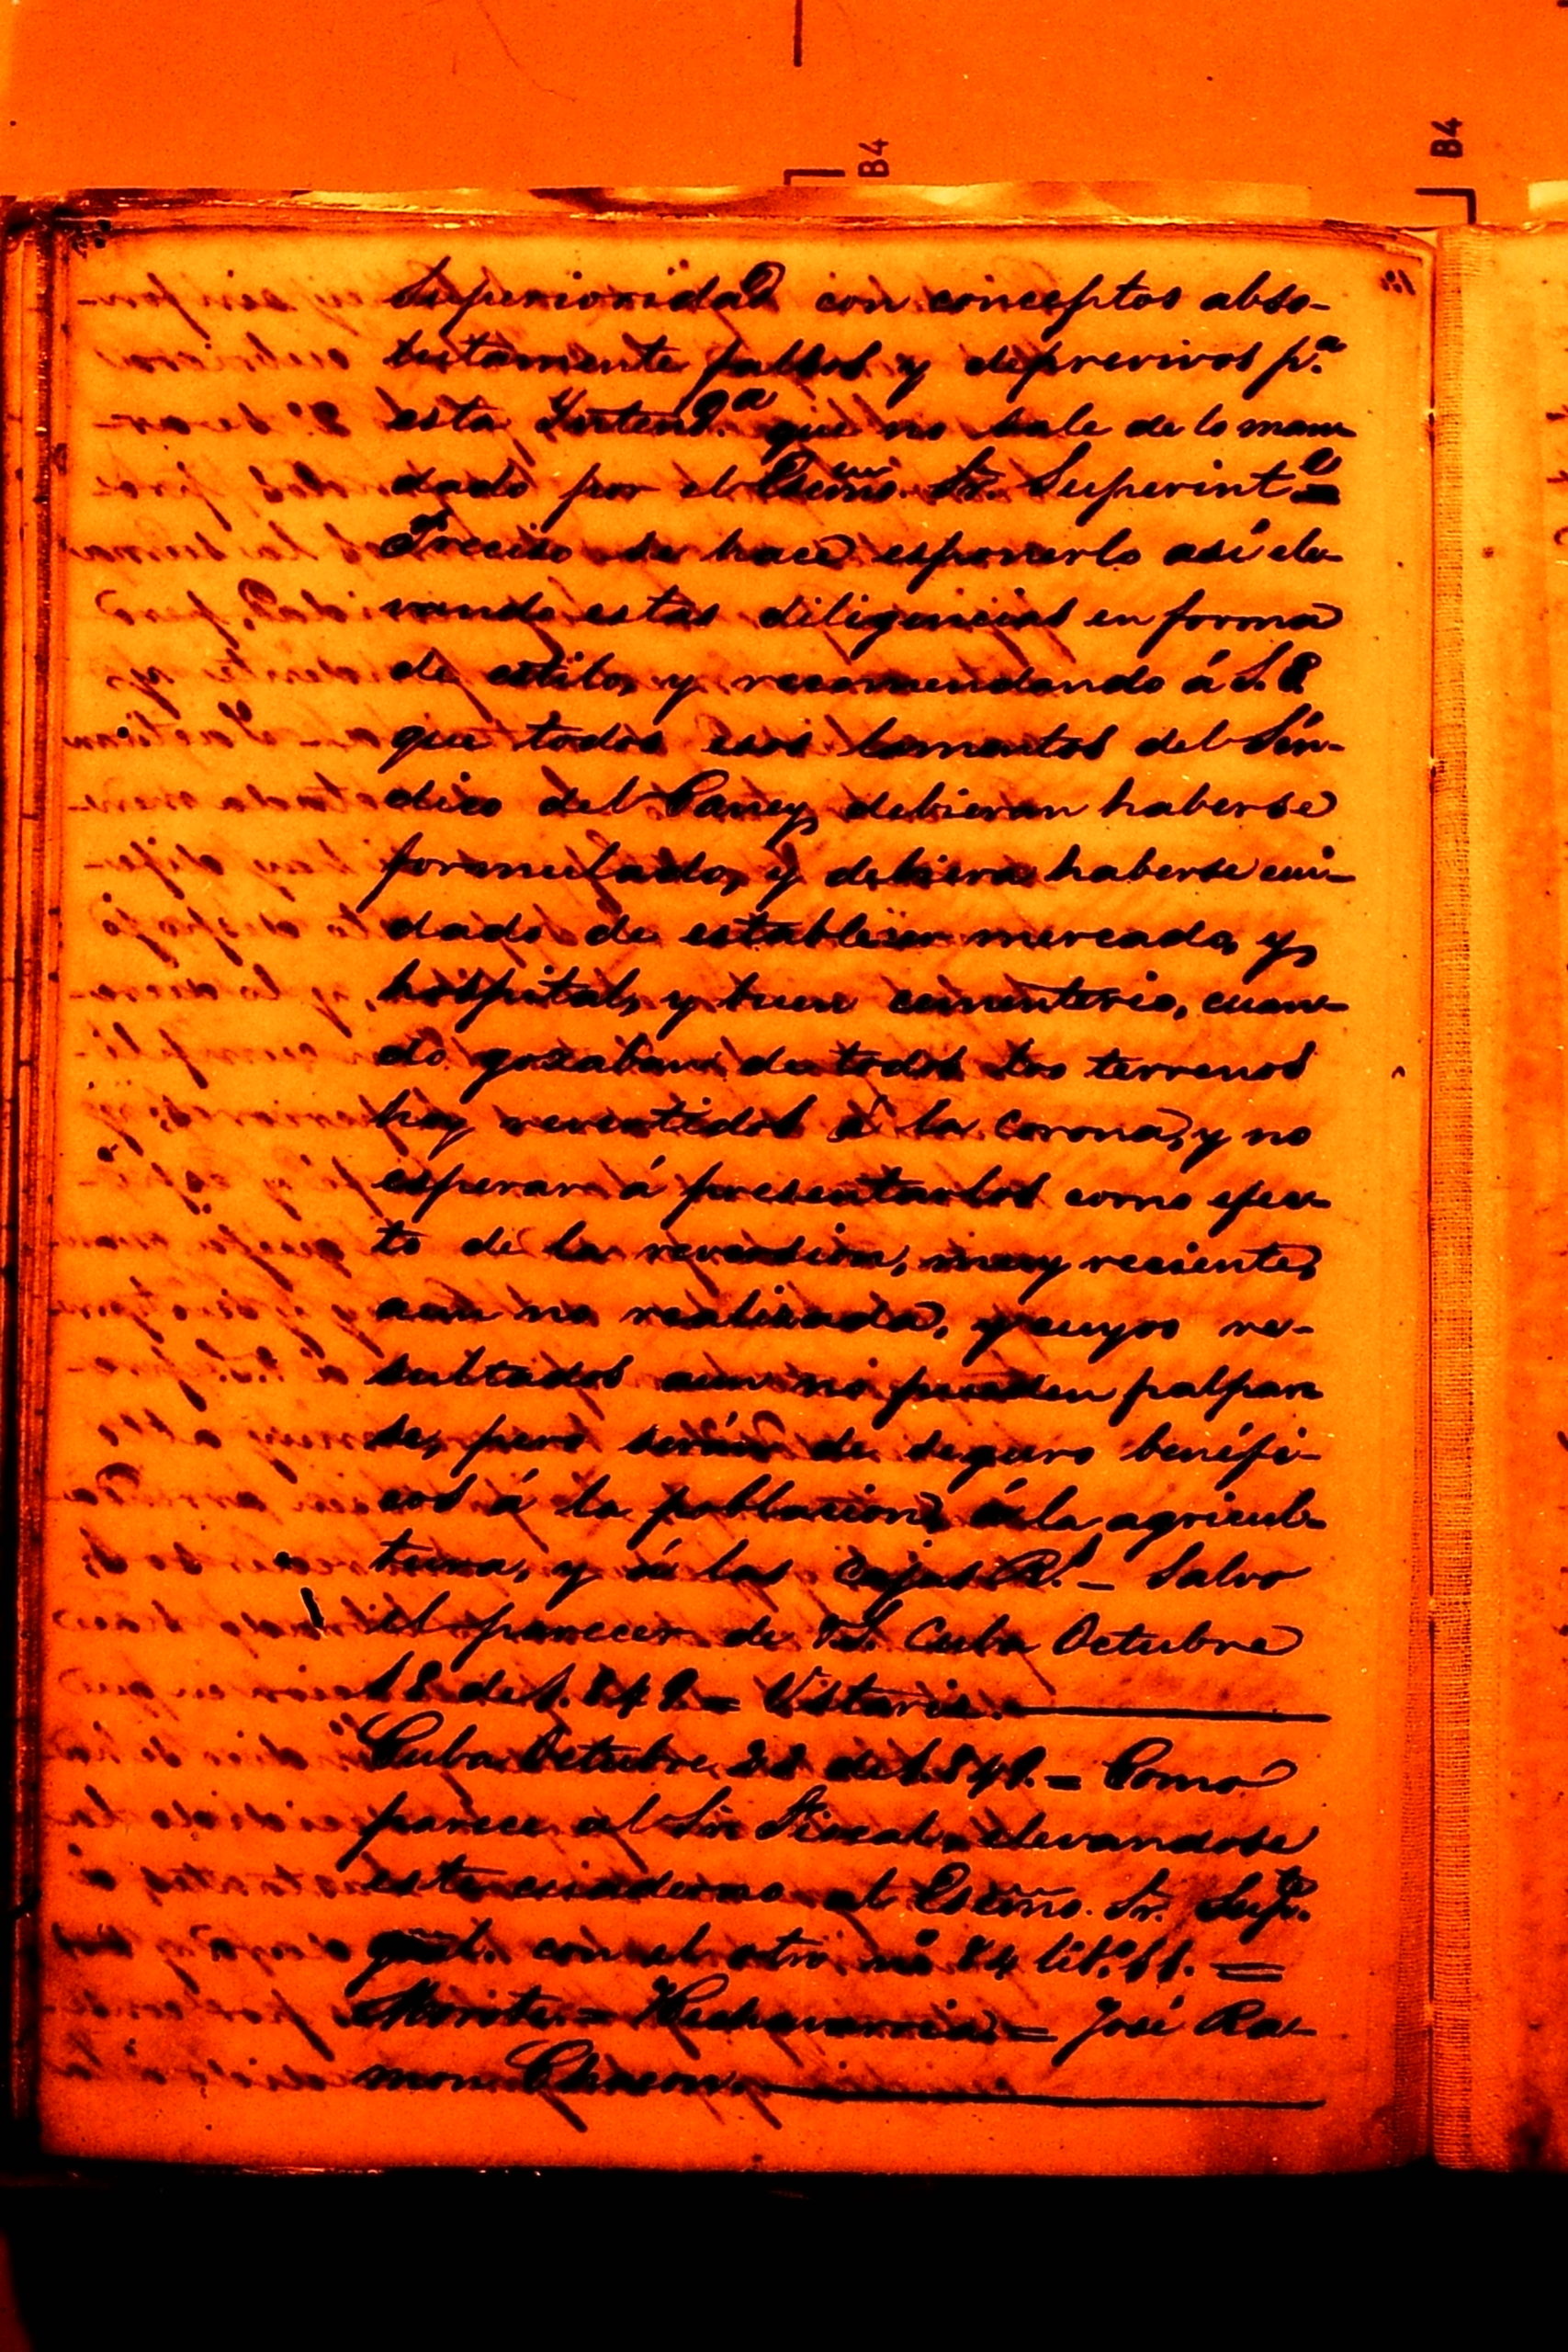 B4
B4
Superioridad con conceptos abso-
lutamente falsos y depresivos p.ª
esta Intend.ª que no sale de lo man-
dado por el Escmo. Sr. Superint.e
Preciso se hace esponerlo así ele-
vando estas diligencias en forma
de estilo, y recomendando á S.E.
que todos esos lamentos del Sín-
dico del Caney, debieran haberse
formulado, y debiera haberse cui-
dado de establecer mercado, y
hospital, y buen cementerio, cuan-
do gozaban de todos los terrenos
hoy revertidos á la Corona, y no
esperar á presentarlos como efec-
to de la reversion, muy reciente,
aun no realizada, y cuyos re-
sultados aun no pueden palpar-
se, pero serán de seguro benéfi-
cos á la poblacion, á la agricul-
tura, y á las Cajas R.s – Salvo
el parecer de V.S. Cuba Octubre
de 1.849. = Vistaris.
Cuba Octubre 22 de 1.849. = Como
parece al Sor Fiscal, elevandose
este cuaderno al Escmo. Sr. Sup.te
gral. con el otro nº 84 lib.º 11. =
= Hechavarria = José Ra-
mon Chacon.